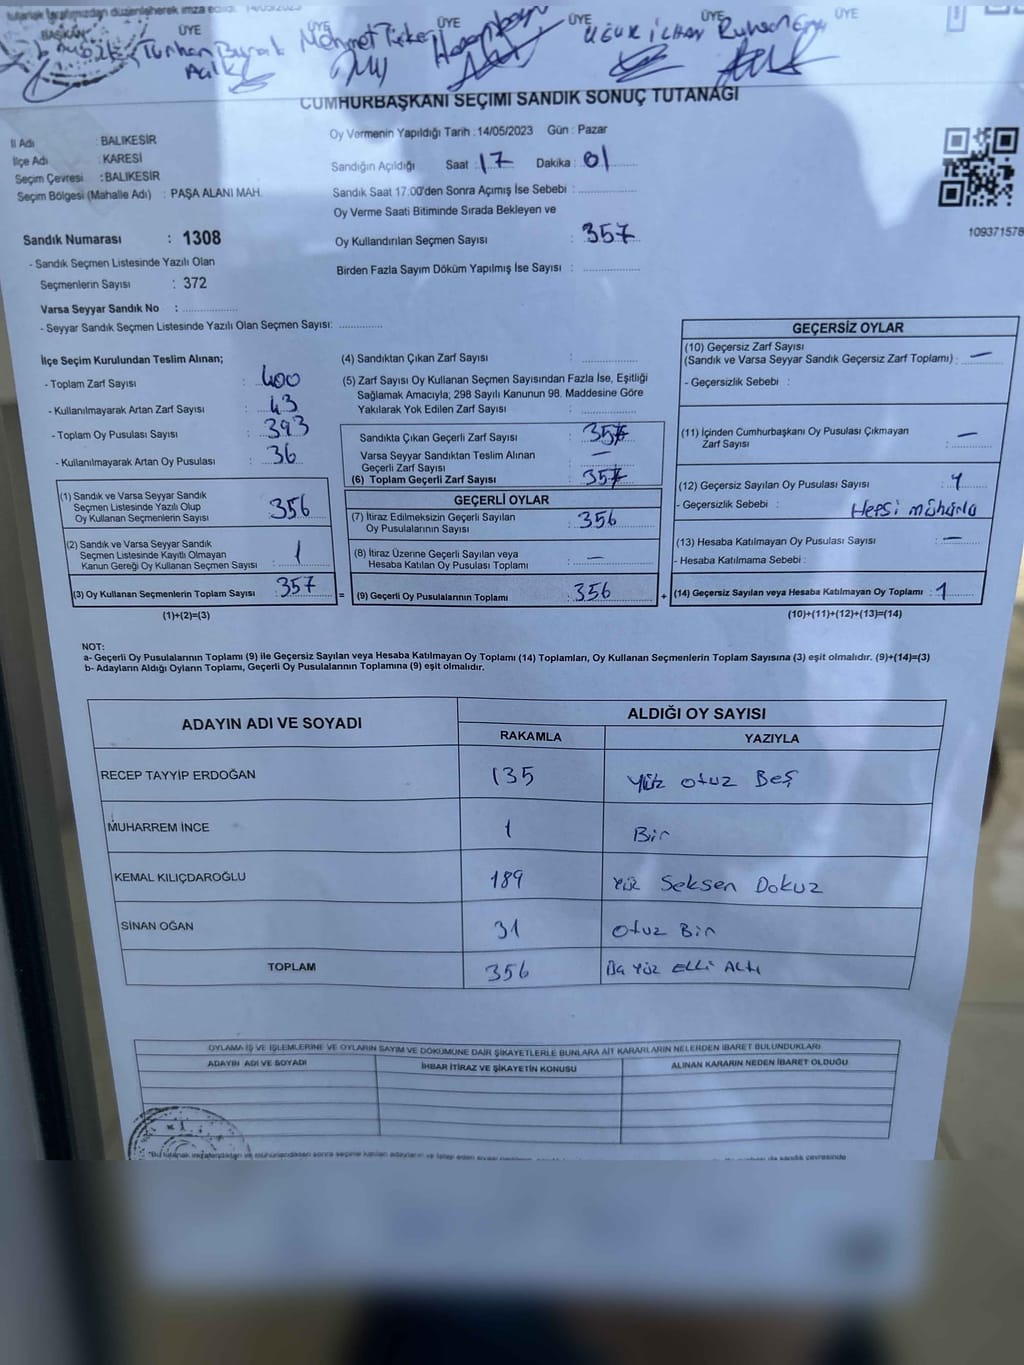 tutanak tarafımızdan düzenlenerek imza edildi. 14/05/2023
BAŞKAN ÜYE ÜYE ÜYE ÜYE ÜYE ÜYE
Turhan Burak Mehmet Hasan UĞUR İLHAN
CUMHURBAŞKANI SEÇİMİ SANDIK SONUÇ TUTANAĞI
İl Adı : BALIKESİR
İlçe Adı : KARESİ
Seçim Çevresi : BALIKESİR
Seçim Bölgesi (Mahalle Adı) : PAŞA ALANI MAH.
Oy Vermenin Yapıldığı Tarih : 14/05/2023 Gün : Pazar
Sandığın Açıldığı Saat : 17 Dakika : 01
Sandık Saat 17:00'den Sonra Açımış İse Sebebi :
Oy Verme Saati Bitiminde Sırada Bekleyen ve
Oy Kullandırılan Seçmen Sayısı : 357
Birden Fazla Sayım Döküm Yapılmış İse Sayısı :
109371578
Sandık Numarası : 1308
- Sandık Seçmen Listesinde Yazılı Olan
Seçmenlerin Sayısı : 372
Varsa Seyyar Sandık No :
- Seyyar Sandık Seçmen Listesinde Yazılı Olan Seçmen Sayısı:
İlçe Seçim Kurulundan Teslim Alınan;
- Toplam Zarf Sayısı : 400
- Kullanılmayarak Artan Zarf Sayısı : 43
- Toplam Oy Pusulası Sayısı : 393
- Kullanılmayarak Artan Oy Pusulası : 36
(1) Sandık ve Varsa Seyyar Sandık
Seçmen Listesinde Yazılı Olup
Oy Kullanan Seçmenlerin Sayısı : 356
(2) Sandık ve Varsa Seyyar Sandık
Seçmen Listesinde Kayıtlı Olmayan
Kanun Gereği Oy Kullanan Seçmen Sayısı : 1
(3) Oy Kullanan Seçmenlerin Toplam Sayısı : 357
(1)+(2)=(3)
(4) Sandıktan Çıkan Zarf Sayısı :
(5) Zarf Sayısı Oy Kullanan Seçmen Sayısından Fazla İse, Eşitliği
Sağlamak Amacıyla; 298 Sayılı Kanunun 98. Maddesine Göre
Yakılarak Yok Edilen Zarf Sayısı :
Sandıkta Çıkan Geçerli Zarf Sayısı : 357
Varsa Seyyar Sandıktan Teslim Alınan
Geçerli Zarf Sayısı : —
(6) Toplam Geçerli Zarf Sayısı : 357
GEÇERLİ OYLAR
(7) İtiraz Edilmeksizin Geçerli Sayılan
Oy Pusulalarının Sayısı : 356
(8) İtiraz Üzerine Geçerli Sayılan veya
Hesaba Katılan Oy Pusulası Toplamı : —
= (9) Geçerli Oy Pusulalarının Toplamı : 356
GEÇERSİZ OYLAR
(10) Geçersiz Zarf Sayısı
(Sandık ve Varsa Seyyar Sandık Geçersiz Zarf Toplamı) : —
- Geçersizlik Sebebi :
(11) İçinden Cumhurbaşkanı Oy Pusulası Çıkmayan
Zarf Sayısı : —
(12) Geçersiz Sayılan Oy Pusulası Sayısı : 1
- Geçersizlik Sebebi : Hepsi mühürlü
(13) Hesaba Katılmayan Oy Pusulası Sayısı : —
- Hesaba Katılmama Sebebi :
+ (14) Geçersiz Sayılan veya Hesaba Katılmayan Oy Toplamı : 1
(10)+(11)+(12)+(13)=(14)
NOT:
a- Geçerli Oy Pusulalarının Toplamı (9) ile Geçersiz Sayılan veya Hesaba Katılmayan Oy Toplamı (14) Toplamları, Oy Kullanan Seçmenlerin Toplam Sayısına (3) eşit olmalıdır. (9)+(14)=(3)
b- Adayların Aldığı Oyların Toplamı, Geçerli Oy Pusulalarının Toplamına (9) eşit olmalıdır.
ADAYIN ADI VE SOYADI ALDIĞI OY SAYISI
RAKAMLA YAZIYLA
RECEP TAYYİP ERDOĞAN 135 Yüz otuz Beş
MUHARREM İNCE 1 Bir
KEMAL KILIÇDAROĞLU 189 Yüz Seksen Dokuz
SİNAN OĞAN 31 Otuz Bir
TOPLAM 356 Üç Yüz Elli Altı
OYLAMA İŞ VE İŞLEMLERİNE VE OYLARIN SAYIM VE DÖKÜMÜNE DAİR ŞİKAYETLERLE BUNLARA AİT KARARLARIN NELERDEN İBARET BULUNDUKLARI
ADAYIN ADI VE SOYADI İHBAR İTİRAZ VE ŞİKAYETİN KONUSU ALINAN KARARIN NEDEN İBARET OLDUĞU